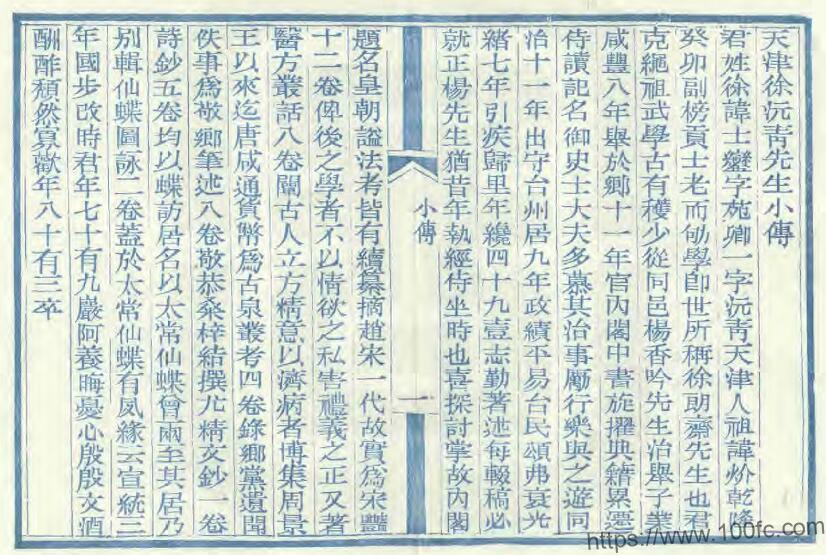 天津徐沅青先生小傳
君姓徐諱士鑾字苑卿一字沅青天津人祖諱炌乾隆
癸卯副榜貢士老而劬學卽世所稱徐朗齋先生也君
克繩祖武學古有穫少從同邑楊香吟先生治舉子業
咸豐八年舉於鄉十一年官內閣中書旋擢典籍累遷
侍讀記名御史士大夫多慕其治事厲行樂與之遊同
治十一年出守台州居九年政績平易台民頌弗衰光
緒七年引疾歸里年纔四十九壹志勤著述每輟稿必
就正楊先生猶昔年執經侍坐時也喜探討掌故內閣
小傳
一
題名皇朝謚法考皆有續纂摘趙宋一代故實爲宋豔
十二卷俾後之學者不以情欲之私害禮義之正又著
醫方叢話八卷闡古人立方精意以濟病者博集周景
王以來迄唐咸通貨幣爲古泉叢考四卷錄鄉黨遺聞
佚事爲敬鄉筆述八卷敬恭桑梓結撰尤精文鈔一卷
詩鈔五卷均以蝶訪居名以太常仙蝶曾兩至其居乃
別輯仙蝶圖詠二卷蓋於太常仙蝶有夙緣云宣統三
年國步改時君年七十有九巖阿養晦憂心殷殷文酒
酬酢頹然寡歡年八十有三卒
https://www.100fc.com